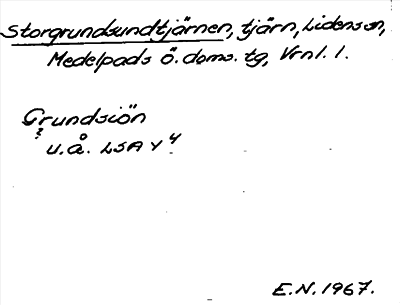 Storgrundsundtjärnen, tjärn, Lidens sn,
Medelpads Ö. doms. tg, Vrnl. 1.
Grundsiön
U.Å. LSA Y 4
E.N. 1967.